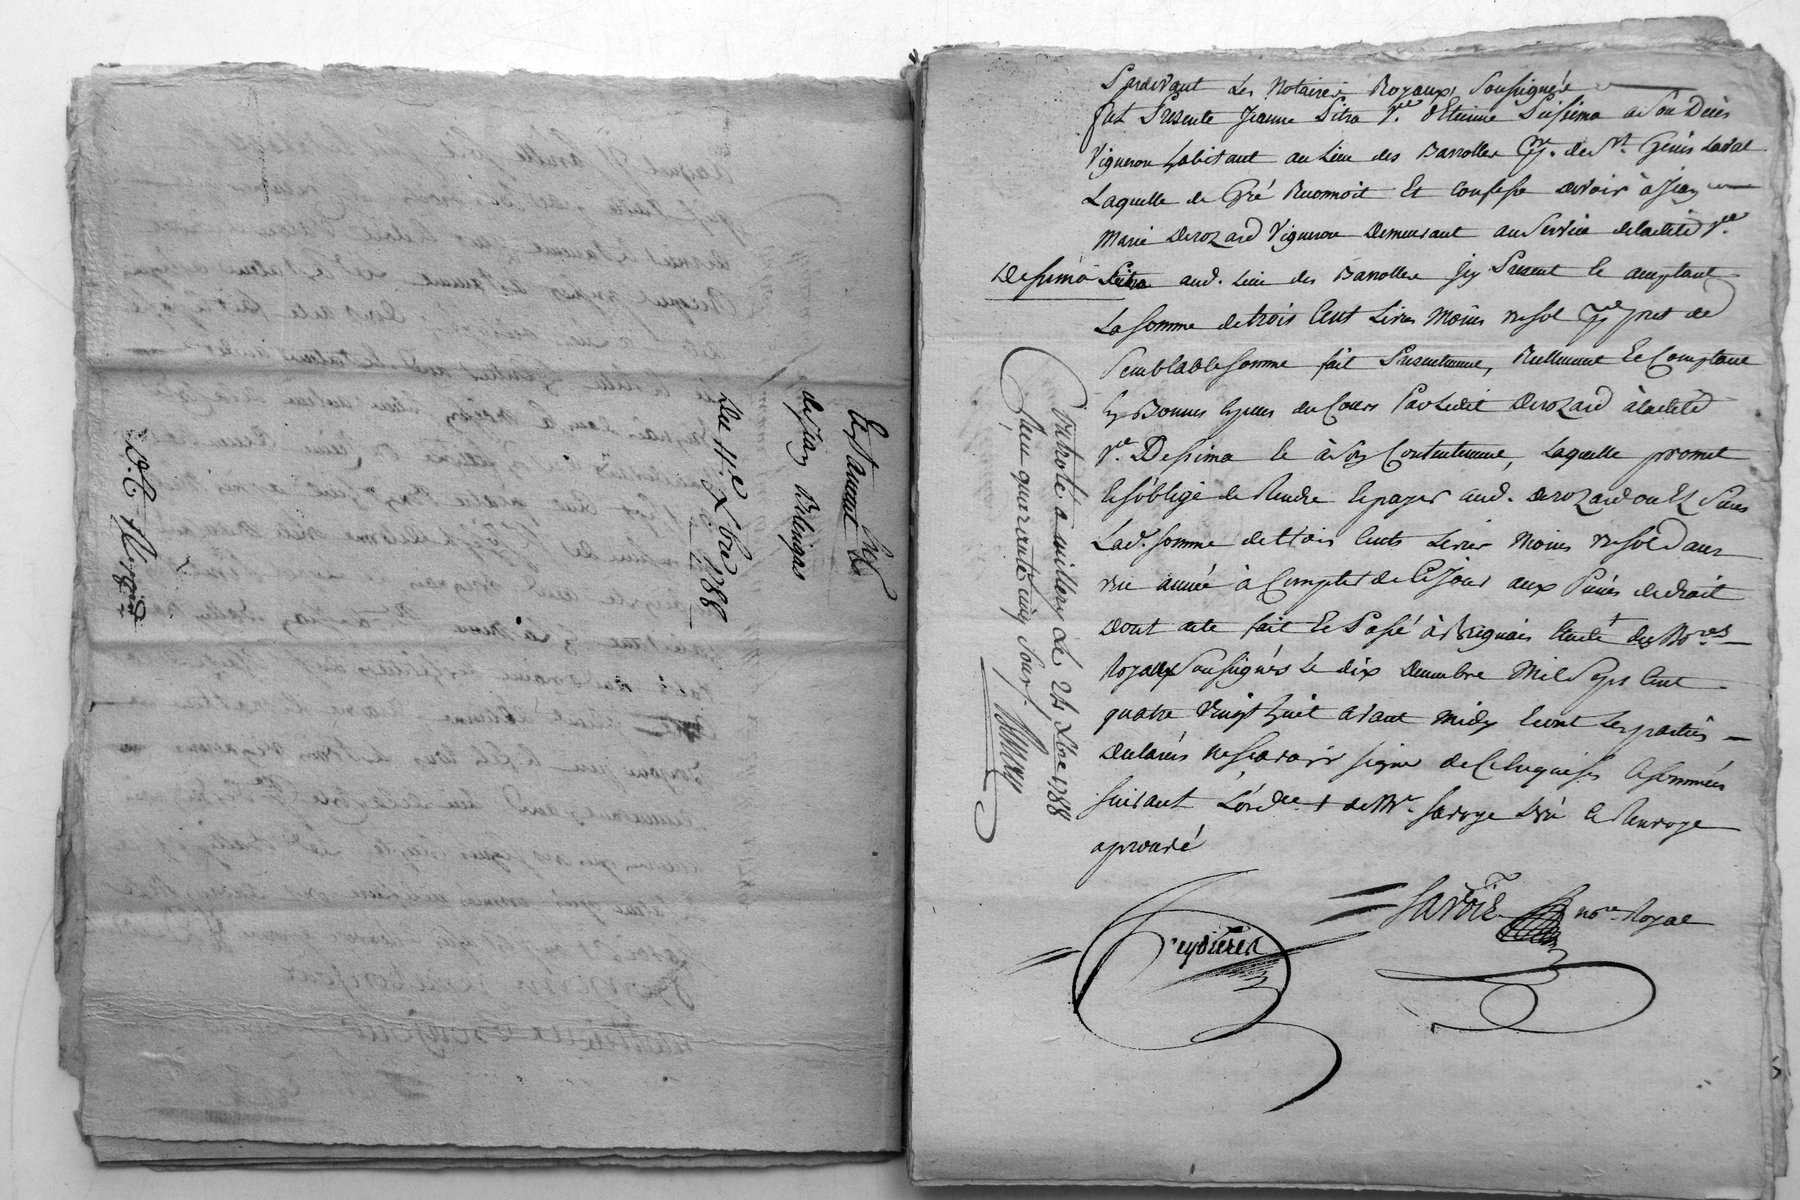 Testament
de Jean
Du 11.e Xbre 1788
Pardevant Les Notaires Royaux Soussignés
fut Presente Jeanne Pitra V.ve d'Etienne Dessima a son Deces
Vigneron habitant au Lieu des Barolles P.sse de S.t Genis Laval
Laquelle de Gré Reconnoit Et confesse devoir à Jean
Marie Derozard Vigneron Demeurant au Service de ladite V.ve
Dessima aud. Lieu des Barolles Icy Present Et acceptant
La Somme de trois Cent Livres Moins un sol P.r pret de
Semblable somme fait Presentement, Reellement Et Comptant
En Bonnes Especes du Cours Par Ledit Derozard à ladite
V.ve Dessima Et à Son Contentement, Laquelle promet
Et s'oblige de Rendre Et payer aud. Derozard ou Es Siens
Lad. somme de trois Cents Livres Moins un sol Dans
une année à Compter de Ce Jour aux Peines de droit
Dont acte fait Et Passé à Brignais Etude + des No.res
Royaux Soussignés Le dix Decembre Mil Sept Cent
quatre Vingt huit avant midy Et ont Les parties
Declarés ne Scavoir signer de Ce Enquises Et sommées
suivant L'ordce + de M.e Savoye L'un Et Renvoye
aprouvé
Savoie no.re Royal
Controlé a millery Le 24 Xbre 1788
Reçu quarante cinq sous